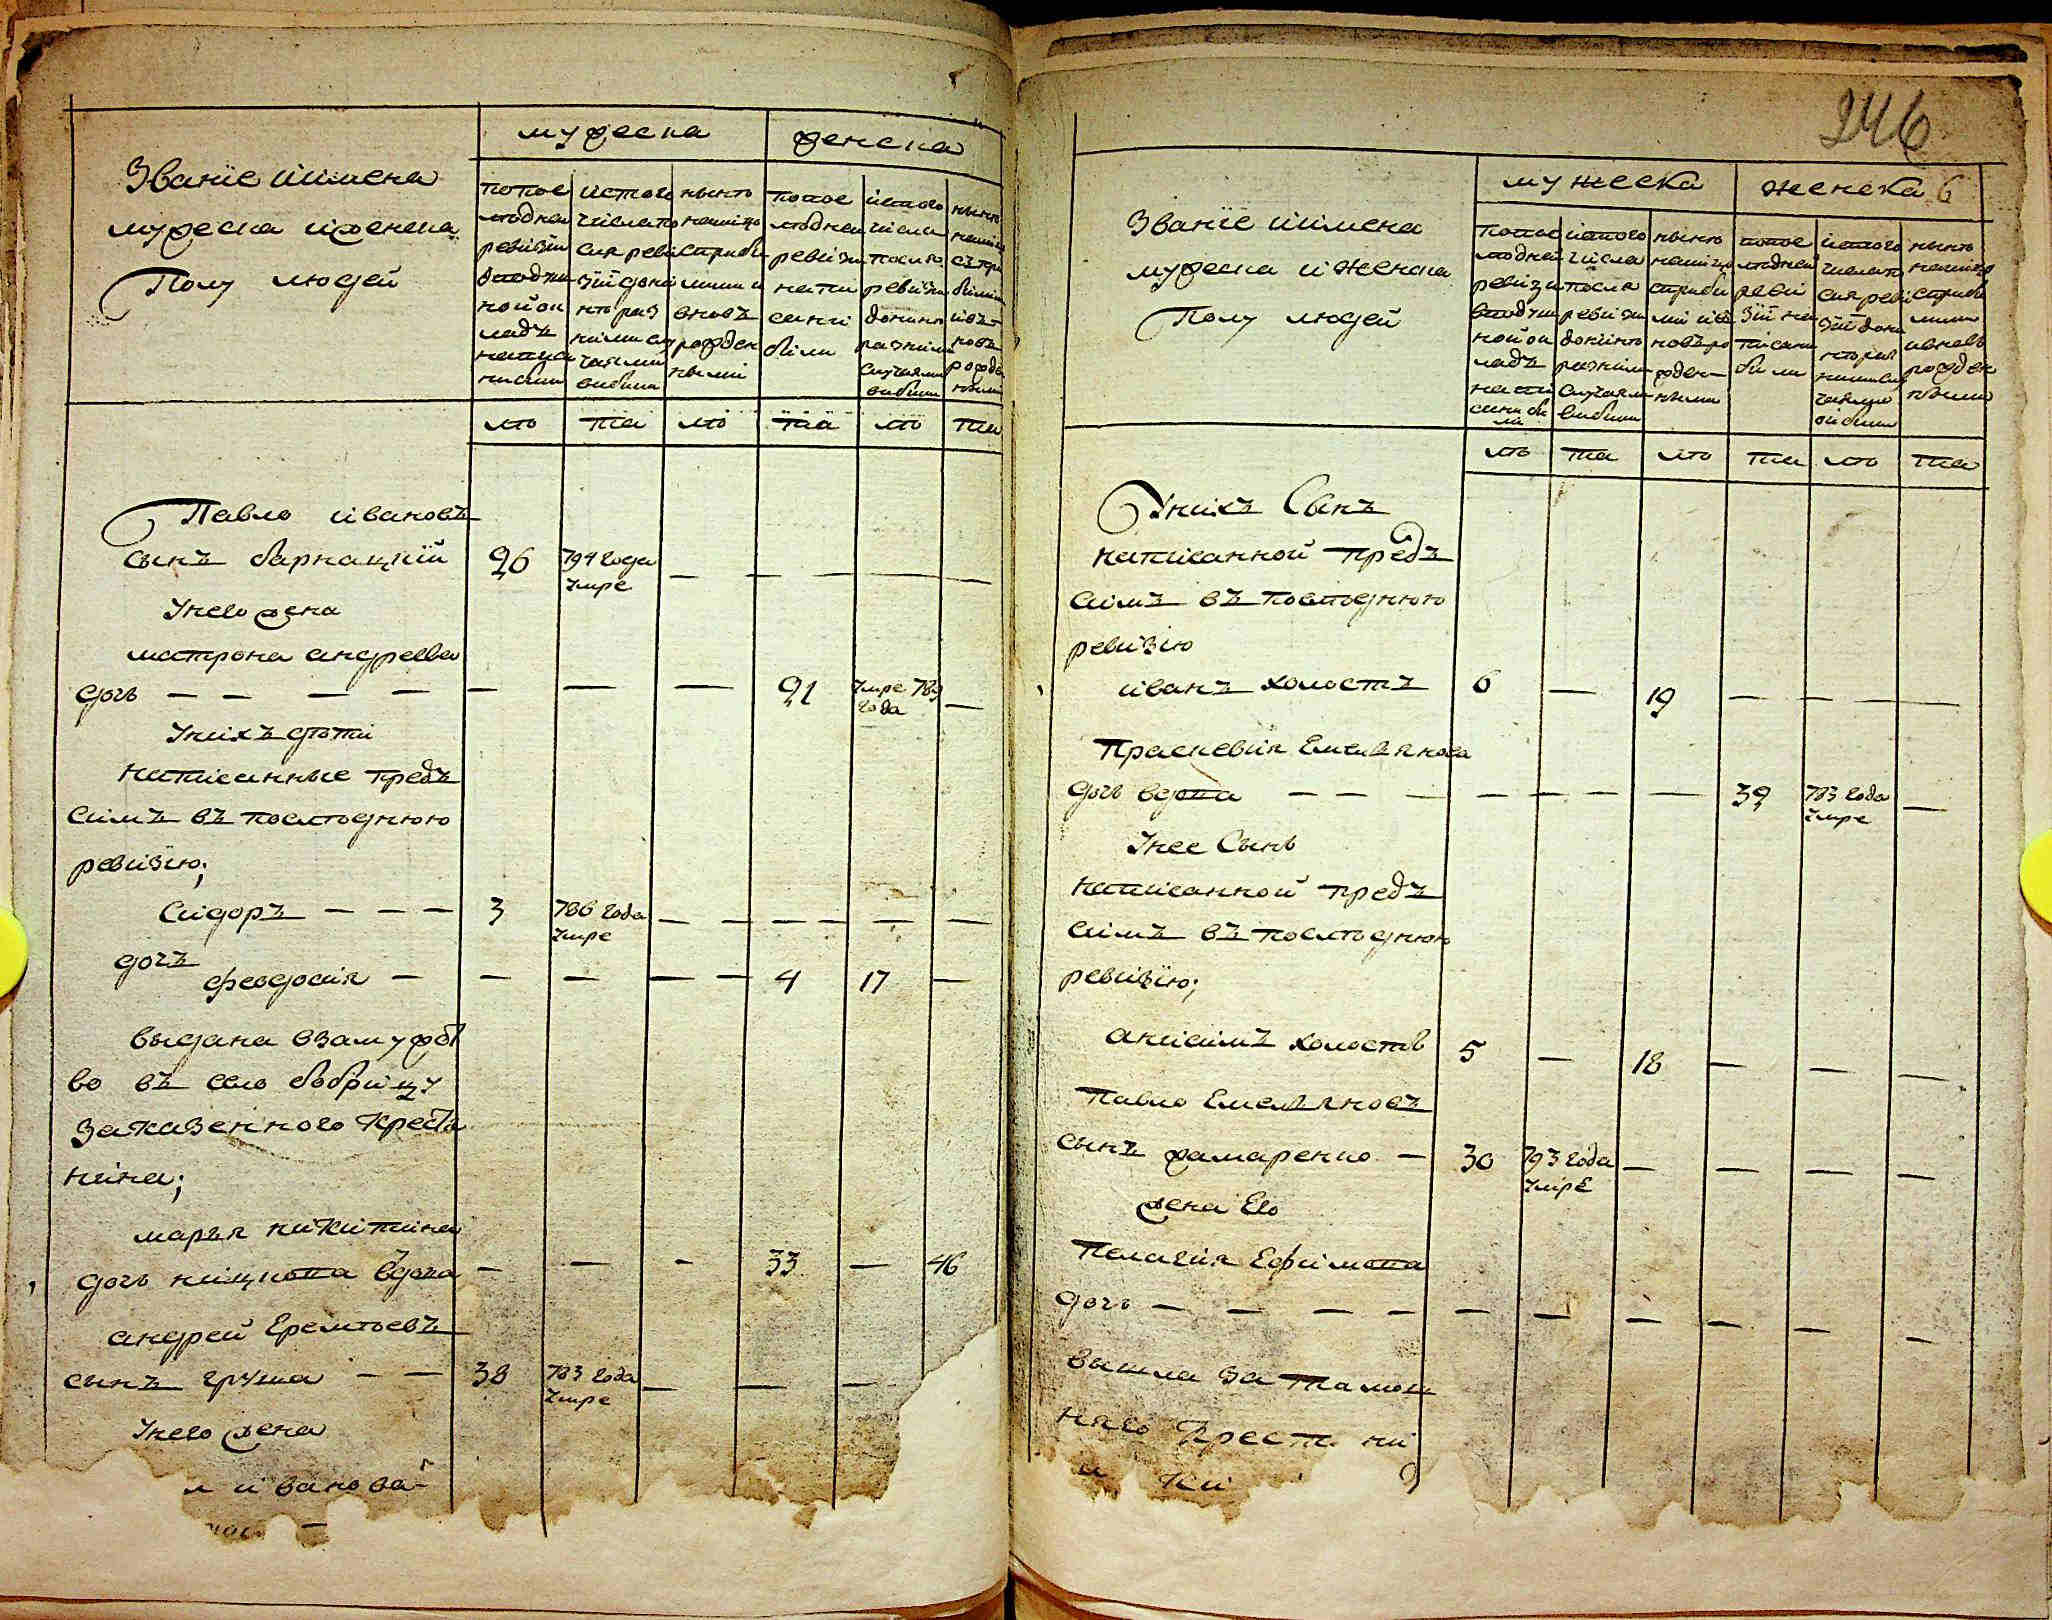 Званіе иимена
мужеска иженска
Полу людей
мужеска
женска
попос
ледней
ревизіи
вподуш
ной ок
ладъ
написа
ни были
истого
числа по
сля реви
зіи до ни
нѣ раз
ними слу
чаями
выбыли
нынѣ
налицо
сприбы
лими и
вновь
рожден
ными
попос
ледней
ревизіи
напи
сани
были
истого
числа
после
ревизіи
донинѣ
разними
случаями
выбыли
нынѣ
лѣ
та
лѣ
та
лѣ
та
Павло ивановъ
сынъ барнацкій 26 794 года умре — — — —
Унего жена
матрона андреева
дочь — — — — — — — 21 умре 789 года —
Унихъ дѣти
написанные предъ
симъ въ послѣднюю
ревизію;
Сидоръ — — — 3 786 года умре — — — — — —
дочь
феодосія — — — — — 4 17 —
выдана взамужѣст
во въ село бобрицу
заказенного крестья
нина;
марья никитина
дочь нищкова вдова — — - 33 — 46
андрей Еремѣевъ
сынъ груша — — 38 783 года умре — — —
Унего жена
иванова
246
6
Званіе иимена
мужеска и женска
Полу людей
мужеска
женска
попос
ледней
ревизіи
вподуш
ной ок
ладъ
напи
сани бы
ли
истого
числа
посля
ревизіи
донинѣ
разними
случаями
выбыли
нынѣ
налицо
сприбы
ми ив
новь ро
жден—
ными
попос
ледней
реви
зіи на
писани
были
истого
числа по
сля реви
зіи дони
нѣ раз
ними слу
чаями
выбыли
нынѣ
налицо
сприбы
лими
ивновь
рожден
ными
лѣ
та
лѣ
та
лѣ
та
Унихъ Сынъ
написанной предъ
симъ въ послѣднюю
ревизію
иванъ холостъ 6 — 19 — — —
Прасковія Емельянова
дочь вдова — — — — — — — 39 783 года умре —
Унее Сынъ
написанной предъ
симъ въ послѣднюю
ревизію;
анисимъ холостъ 5 — 18 — — —
Павло Емельяновъ
сынъ хамаренко — 30 793 года умре — — — —
жена Его
Пелагія Ефимова
дочь — — — — — — — — — —
вышла за тамош
няго крест ни